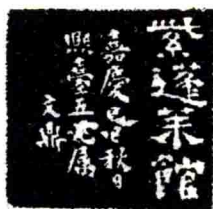 紫蓬萊館
嘉慶己巳秋日
熙臺五兄屬
文鼎